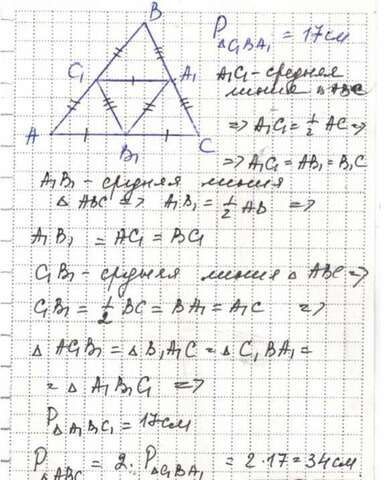 B
P△C₁BA₁ = 17см
C₁
A₁
A₁C₁ - средняя
линия △ABC
A
B₁
C
=> A₁C₁ = 1/2 AC =>
=> A₁C₁ = AB₁ = B₁C
A₁B₁ - средняя линия
△ ABC => A₁B₁ = 1/2 AB =>
A₁B₁ = AC₁ = BC₁
C₁B₁ - средняя линия △ ABC =>
C₁B₁ = 1/2 BC = BA₁ = A₁C =>
△ AC₁B₁ = △ B₁A₁C = △ C₁BA₁ =
= △ A₁B₁C₁ =>
P△A₁B₁C₁ = 17см
P△ABC = 2 · P△C₁BA₁ = 2·17 = 34см